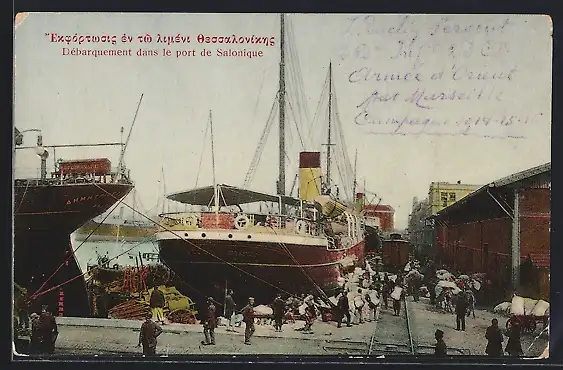 Ἐκφόρτωσις ἐν τῷ λιμένι Θεσσαλονίκης
Débarquement dans le port de Salonique
Sergent
Armée d'Orient
par Marseille
Campagne 1914-15-